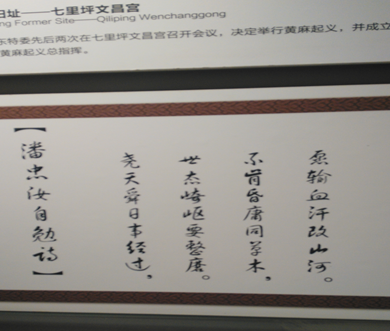 旧址——七里坪文昌宫
ng Former Site——Qiliping Wenchanggong
东特委先后两次在七里坪文昌宫召开会议，决定举行黄麻起义，并成立
黄麻起义总指挥。
【潘忠汝自勉诗】
尧天舜日事经过，
世态崎岖要整磨。
不肯昏庸同草木，
愿输血汗改山河。